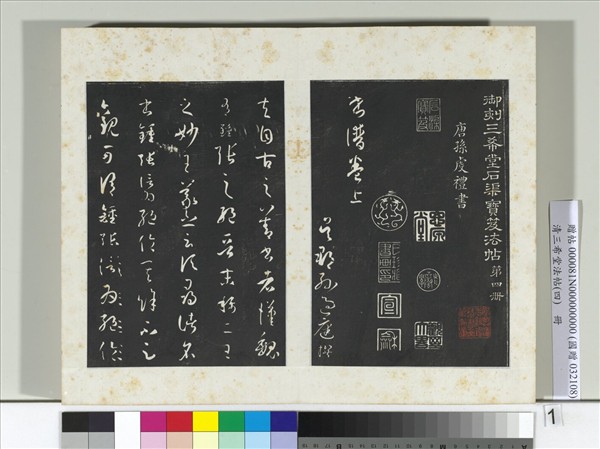 御刻三希堂石渠寶笈法帖第四冊
唐孫虔禮書
書譜卷上
吳郡孫過庭撰
宣
龢
夫自古之善書者漢魏
有鍾張之絕晉末稱二王
之妙王羲之云頃尋諸名
書鍾張信為絕倫其餘不足
觀可謂鍾張云沒而羲獻繼之
贈帖 000081N000000000 (國贈 032108)
清三希堂法帖(四) 冊
1